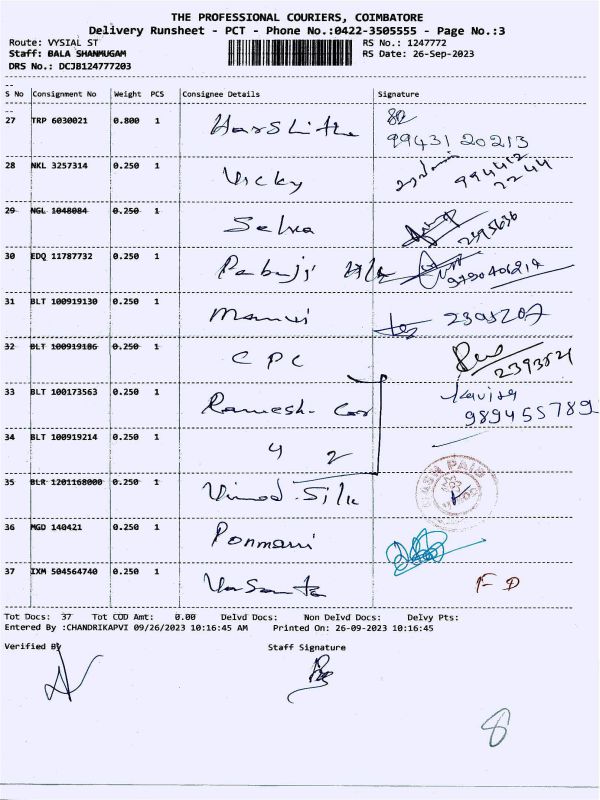 THE PROFESSIONAL COURIERS, COIMBATORE
Delivery Runsheet - PCT - Phone No.:0422-3505555 - Page No.:3
Route: VYSIAL ST RS No.: 1247772
Staff: BALA SHANMUGAM RS Date: 26-Sep-2023
DRS No.: DCJB124777203
S No Consignment No Weight PCS Consignee Details Signature
27 TRP 6030021 0.800 1 Harshitha
99431 20213
28 NKL 3257314 0.250 1 Vicky 994412
2244
29 NGL 1048084 0.250 1 Selva 2395636
30 EDQ 11787732 0.250 1 9790406214
31 BLT 100919130 0.250 1 2395207
32 BLT 100919186 0.250 1 CPC
33 BLT 100173563 0.250 1 Ramesh Kavitha
989455789
34 BLT 100919214 0.250 1 4 2
35 BLR 1201168000 0.250 1 Vinod. Silk CASH PAID
36 MGD 140421 0.250 1 Ponmani
37 IXM 504564740 0.250 1 Vasanta FD
Tot Docs: 37 Tot COD Amt: 0.00 Delvd Docs: Non Delvd Docs: Delvy Pts:
Entered By :CHANDRIKAPVI 09/26/2023 10:16:45 AM Printed On: 26-09-2023 10:16:45
Verified By Staff Signature
8